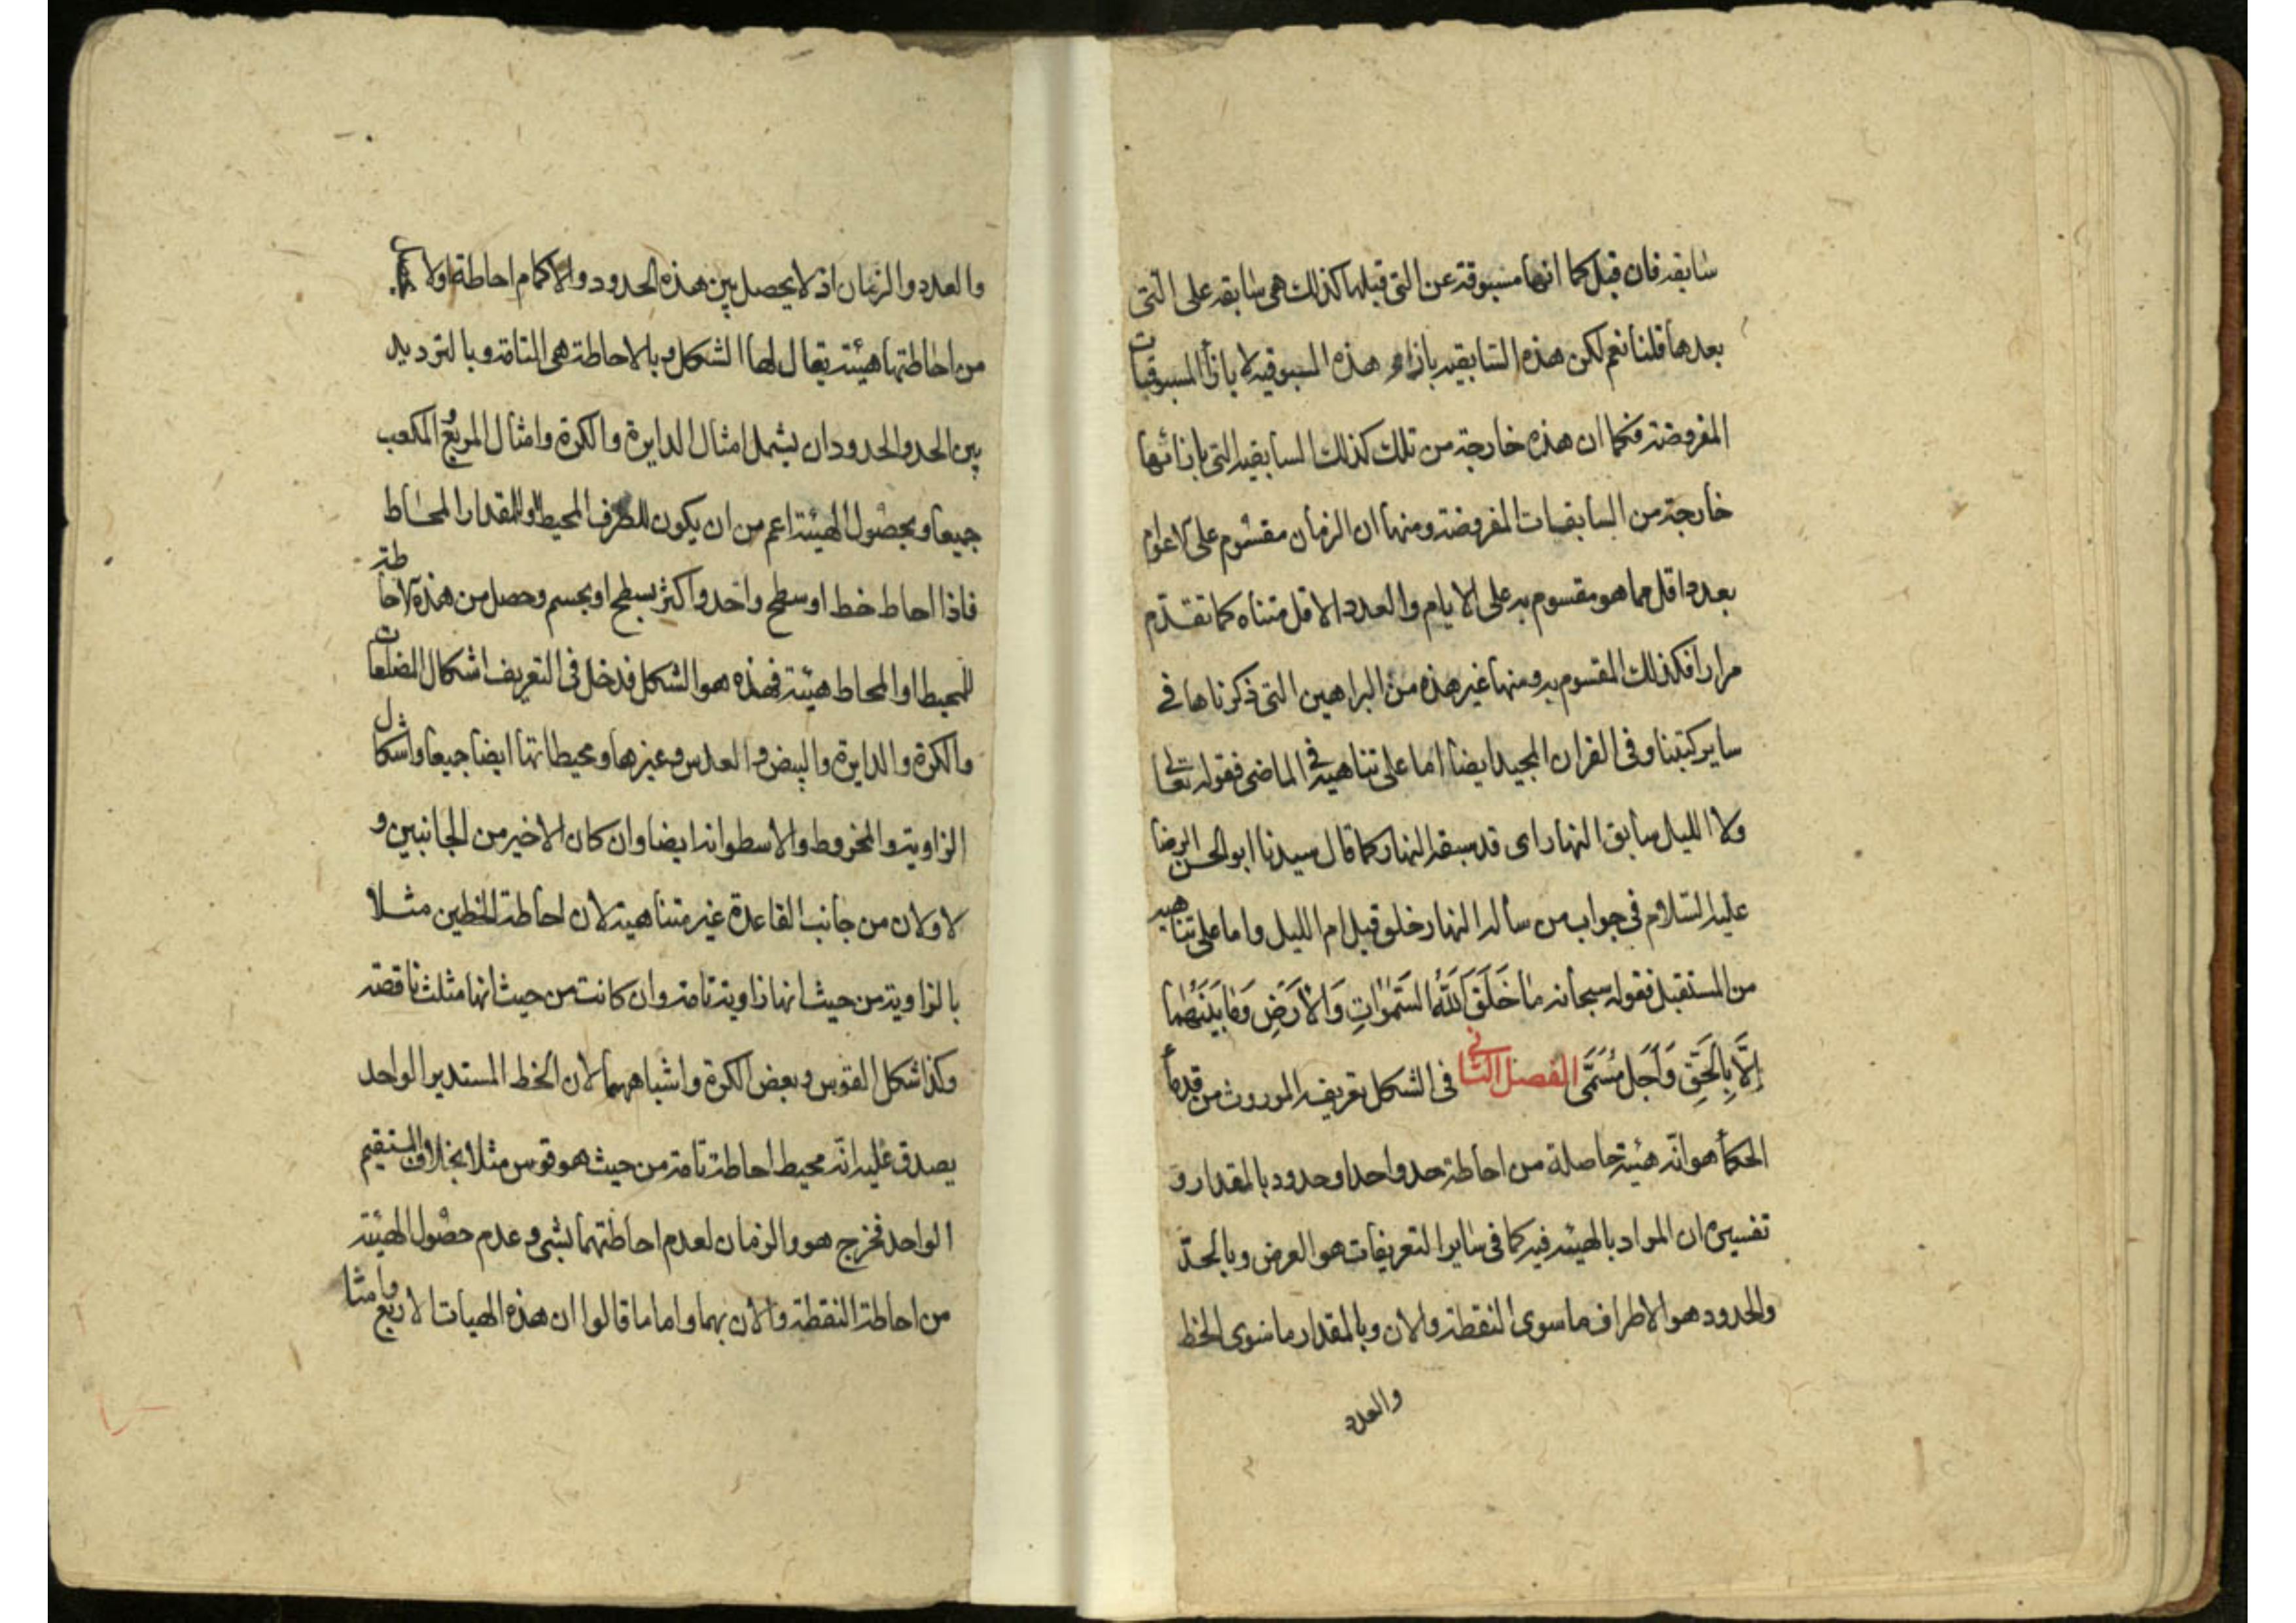 سابقه فان قيل كما انها مسبوقة عن التى قبلها كذلك هى سابقه على التى
بعدها قلنا نعم لكن هذه السابقيه بازاء هذه المسبوقيه لا بازأ المسبوقيات
المفروضة فكما ان هذه خارجة من تلك كذلك السابقيه التى بازائها
خارجة من السابقيات المفروضة ومنها ان الزمان مقسوم على الاعوام
بعدد اقل مما هو مقسوم به على الايام والعدد الاقل متناه كما تقدّم
مرارا فكذلك المقسوم به ومنها غير هذه من البراهين التى ذكرناها فى
ساير كتبنا وفى القران المجيد ايضا اما على تناهيه فى الماضى فقوله تعالى
ولا الليل سابق النهار اى قد سبقه النهار كما قال سيدنا ابو الحسن الرضا
عليه السّلام فى جواب من سأله النهار خلق قبل ام الليل واما على تناهيه
من المستقبل فقوله سبحانه مٰا خَلَقَ اللّٰهُ السَّمٰوٰاتِ وَالْأَرْضَ وَمٰا بَيْنَهُمٰا
إِلّٰا بِالْحَقِّ وَأَجَلٍ مُسَمًّى الفصل الثانى فى الشكل تعريفه الموروث من قدماء
الحكمأ هو انّه هيئة حاصلة من احاطة حد واحد او حدود بالمقدار و
تفسيره ان المراد بالهيئة فيه كما فى ساير التعريفات هو العرض وبالحدّ
والحدود هو الاطراف ما سوى النقطة والان وبالمقدار ما سوى الخط
والعدد
والعدد والزمان اذ لا يحصل بين هذه الحدود والاكمام احاطة اولا
من احاطتها هيئة يقال لها الشكل وبالاحاطة هى التامة وبالترديد
بين الحد والحدود ان يشمل امثال الدايرة والكرة وامثال المربع والمكعب
جميعا وبحصول الهيئة اعم من ان يكون للطرف المحيط او للمقدار المحاط
فاذا احاط خط او سطح واحد واكثر بسطح او بجسم وحصل من هذه الاحاطة
للمحيط او المحاط هيئة فهذه هو الشكل فدخل فى التعريف اشكال المضلعات
والكرة والدايرة والبيض والعدس وغيرها ومحيطاتها ايضا جميعا واشكال
الزاوية والمخروط والاسطوانه ايضا وان كان الاخير من الجانبين و
الاولان من جانب القاعدة غير متناهية لان احاطة الخطين مثلا
بالزاوية من حيث انها زاوية تامة وان كانت من حيث انها مثلث ناقصة
وكذا شكل القوس وبعض الكرة واشباههما لان الخط المستدير الواحد
يصدق عليه انّه محيط احاطة تامة من حيث هو قوس مثلا بخلاف المستقيم
الواحد فخرج هو والزمان لعدم احاطتهما بشى وعدم حصول الهيئة
من احاطة النقطة والان بهما واما ما قالوا ان هذه الهيات الاربع وامثا